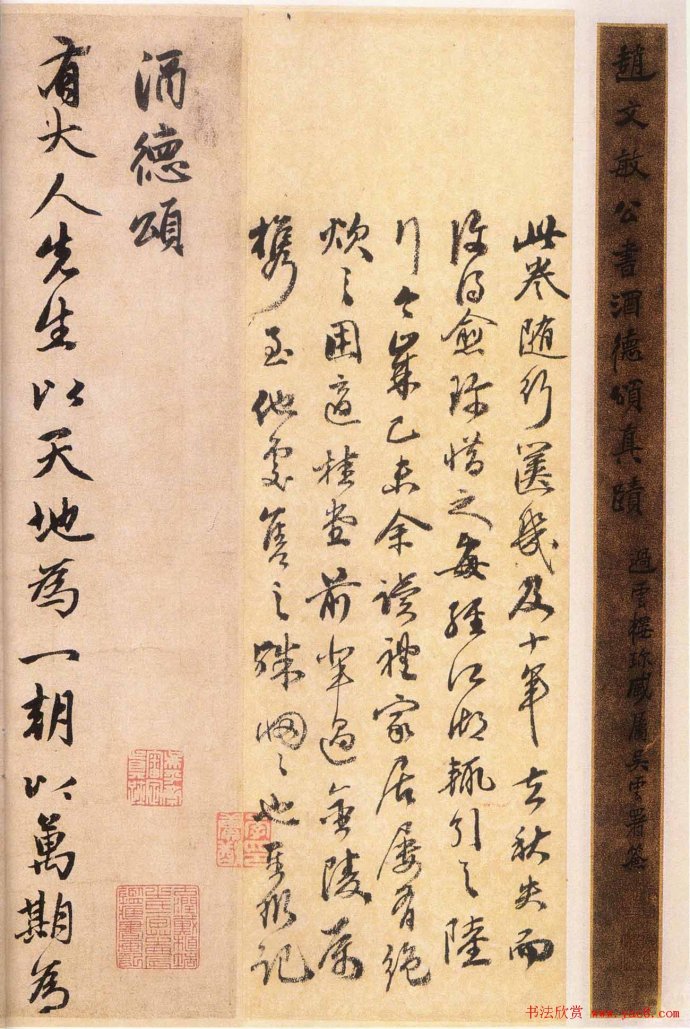 趙文敏公書酒德頌真蹟
過雲樓珍藏屬吳雲署簽
此卷随行篋幾及十年去秋失而
復得愈珍惜之每經江湖輒引之陸
行今歲己未余讀禮家居屢有絶
炊之困適桂堂前輩過金陵屬
携至他處售之殊惘之也
記
酒德頌
有大人先生以天地為一朝以萬期為
书法欣赏 www.yac8.com